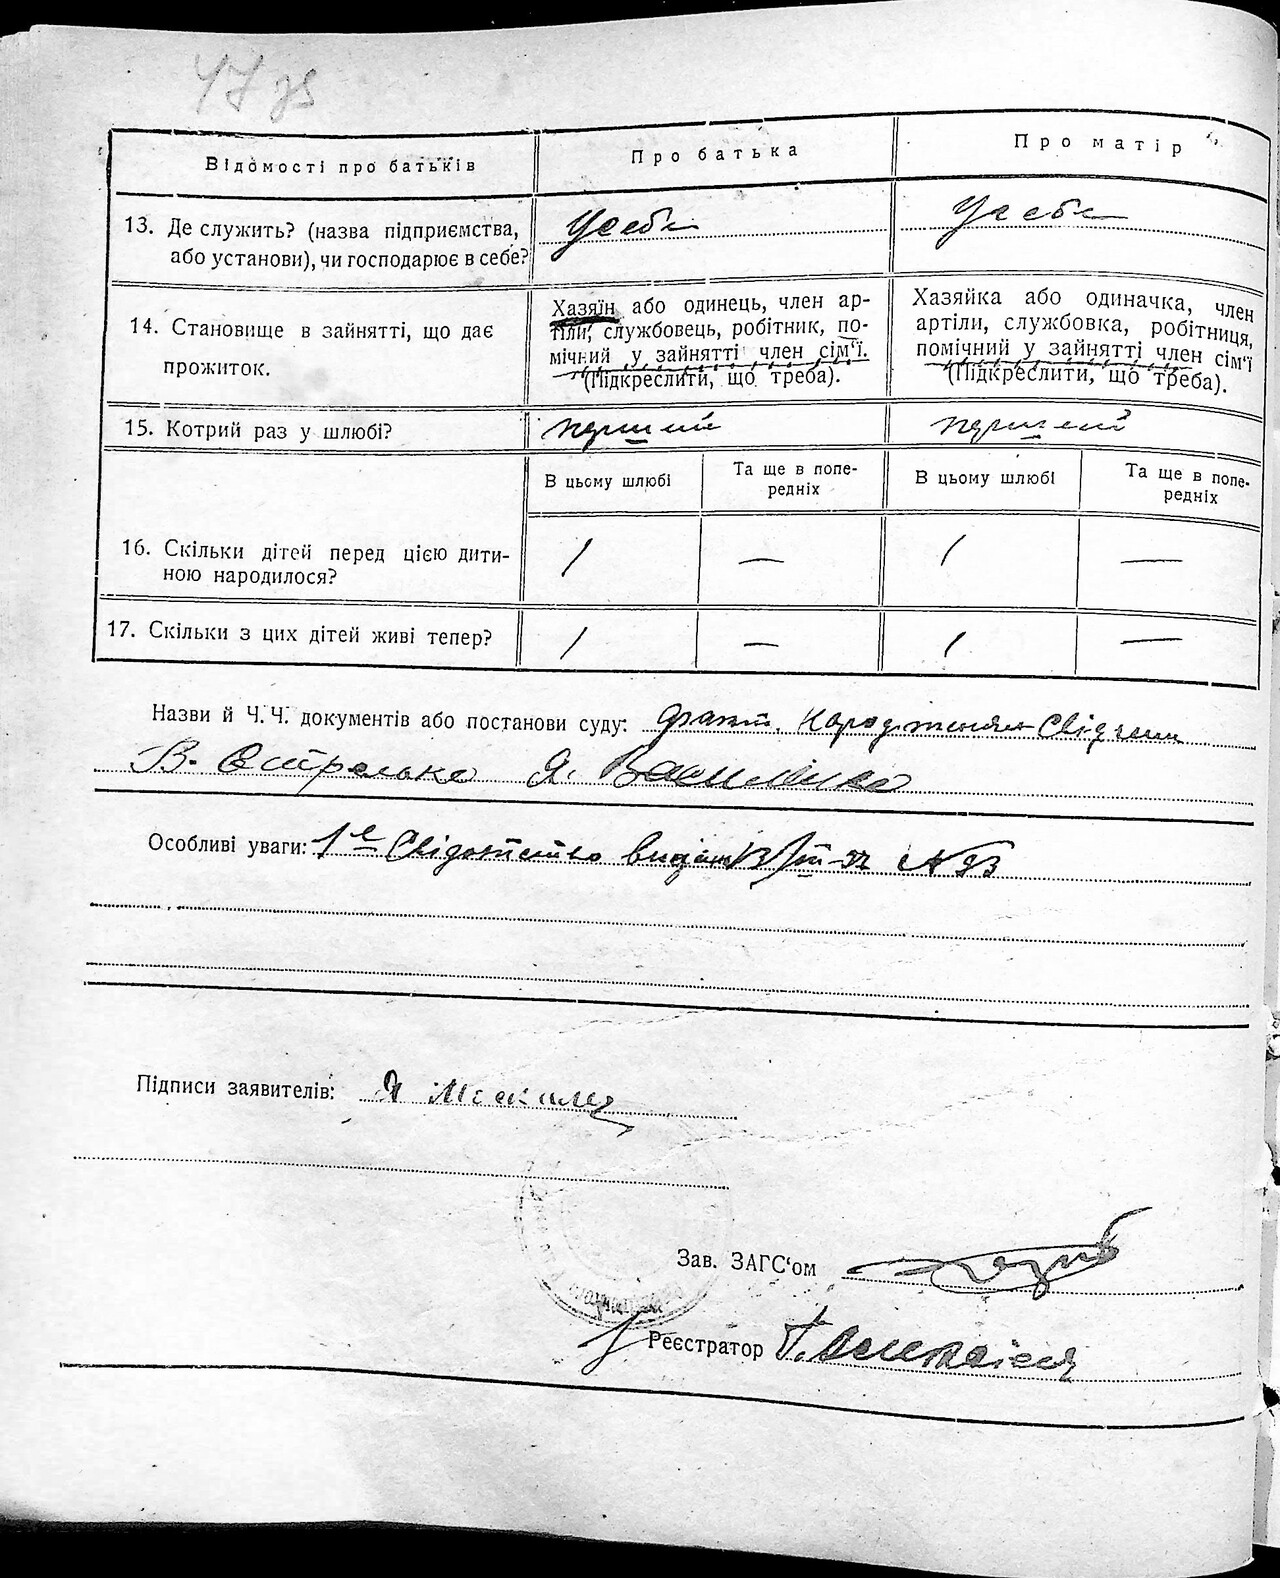 47 зв
Відомості про батьків
Про батька
Про матір
13. Де служить? (назва підприємства,
або установи), чи господарює в себе?
У себе
У себе
14. Становище в зайнятті, що дає
прожиток.
Хазяїн або одинець, член ар-
тіли, службовець, робітник, по-
мічний у зайнятті член сім‘ї.
(Підкреслити, що треба).
Хазяйка або одиначка, член
артіли, службовка, робітниця,
помічний у зайнятті член сім‘ї
(Підкреслити, що треба).
15. Котрий раз у шлюбі?
перший
перший
В цьому шлюбі
Та ще в попе-
редніх
В цьому шлюбі
Та ще в попе-
редніх
16. Скільки дітей перед цією дити-
ною народилося?
/ — / —
17. Скільки з цих дітей живі тепер?
/ — / —
Назви й Ч.Ч. документів або постанови суду: факт. народження свідчили
В. Я.
Особливі уваги: 1е Свідотство видан 13/III-32 N 93
Підписи заявителів: Я
Зав. ЗАГС‘ом
Реєстратор